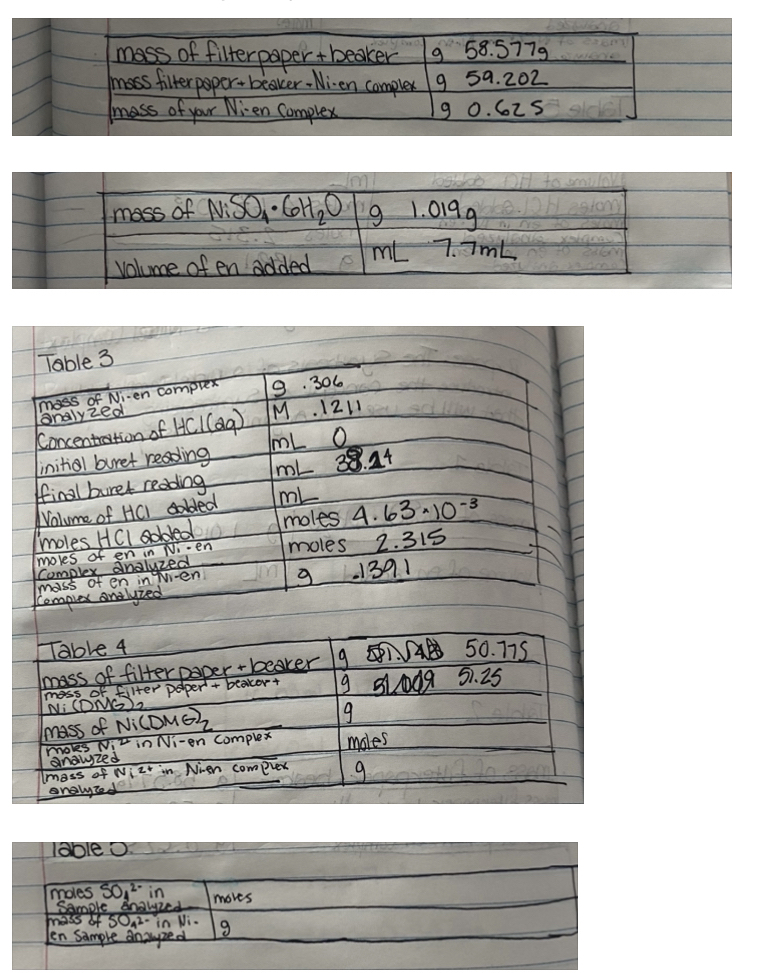 mass of filter paper + beaker g 58.577g
mass filter paper + beaker + Ni-en complex g 59.202
mass of your Ni-en Complex g 0.625
mass of NiSO₄·6H₂O g 1.019g
Volume of en added mL 7.7mL
Table 3
mass of Ni-en complex analyzed g .306
Concentration of HCl(aq) M .1211
initial buret reading mL 0
final buret reading mL 38.24
Volume of HCl added mL
moles HCl added moles 4.63·10⁻³
moles of en in Ni-en Complex analyzed moles 2.315
mass of en in Ni-en Complex analyzed g .1391
Table 4
mass of filter paper + beaker g 50.775
mass of filter paper + beaker + Ni(DMG)₂ g 51.009 51.25
mass of Ni(DMG)₂ g
moles Ni²⁺ in Ni-en complex analyzed moles
mass of Ni²⁺ in Ni-en complex analyzed g
moles SO₄²⁻ in Sample analyzed moles
mass of SO₄²⁻ in Ni-en Sample analyzed g